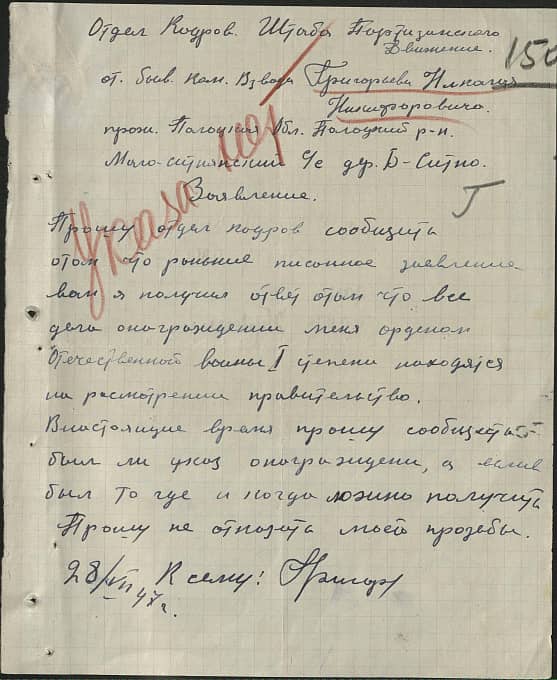 Отдел Кадров. Штаба Партизинского
Движение.
150
от. быв. ком. Взвода Григорьева
Никифоровича.
прож. Полоцкая Обл. Полоцкий р-н.
Мало-ситнянский с/с дер. Б-Ситно.
Указа нет
Заявление.
Прошу отдел кадров сообщить
отом что раньше писанное заявление
вам я получил ответ отом что все
дела онаграждении меня орденом
Отечественной войны I степени находятся
на расмотрении правительство.
Внастоящие время прошу сообщить
был ли указ онаграждени, а если
был то где и когда можно получить
Прошу не отказать моей прозьбы.
28/VII 47 г. К сему: Григор